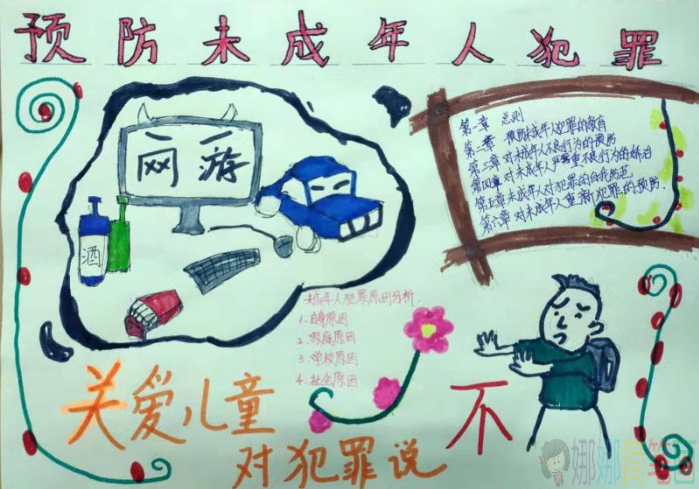 预防未成年人犯罪
网游
酒
第一章 总则
第二章 预防未成年人犯罪的教育
第三章 对未成年人不良行为的预防
第四章 对未成年人严重不良行为的矫治
第五章 未成年人对犯罪的自我防范
第六章 对未成年人重新犯罪的预防.
未成年人犯罪原因分析.
1.自身原因
2.家庭原因
3.学校原因
4.社会原因
关爱儿童
对犯罪说
不
娜娜简笔画